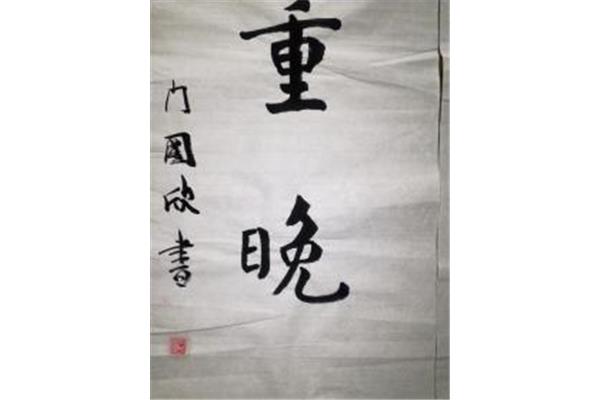 重晚
门国欣书